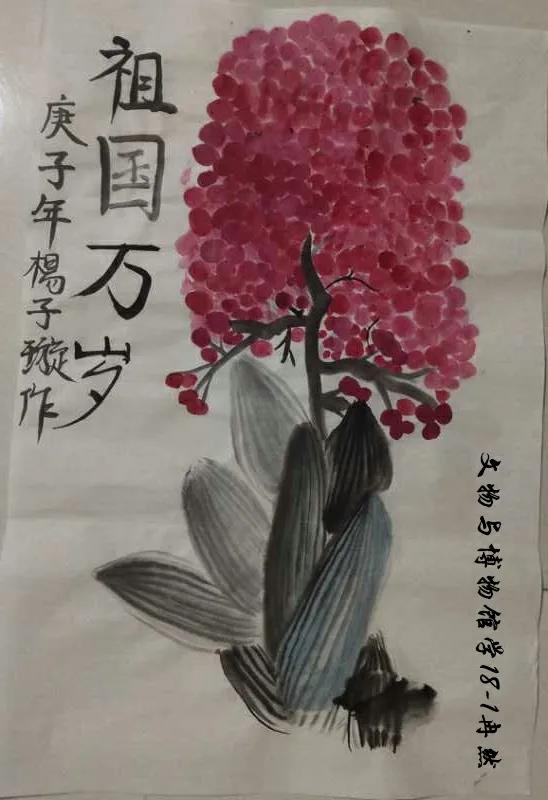 祖国万岁
庚子年楊子璇作
文物与博物馆学18-1冉然